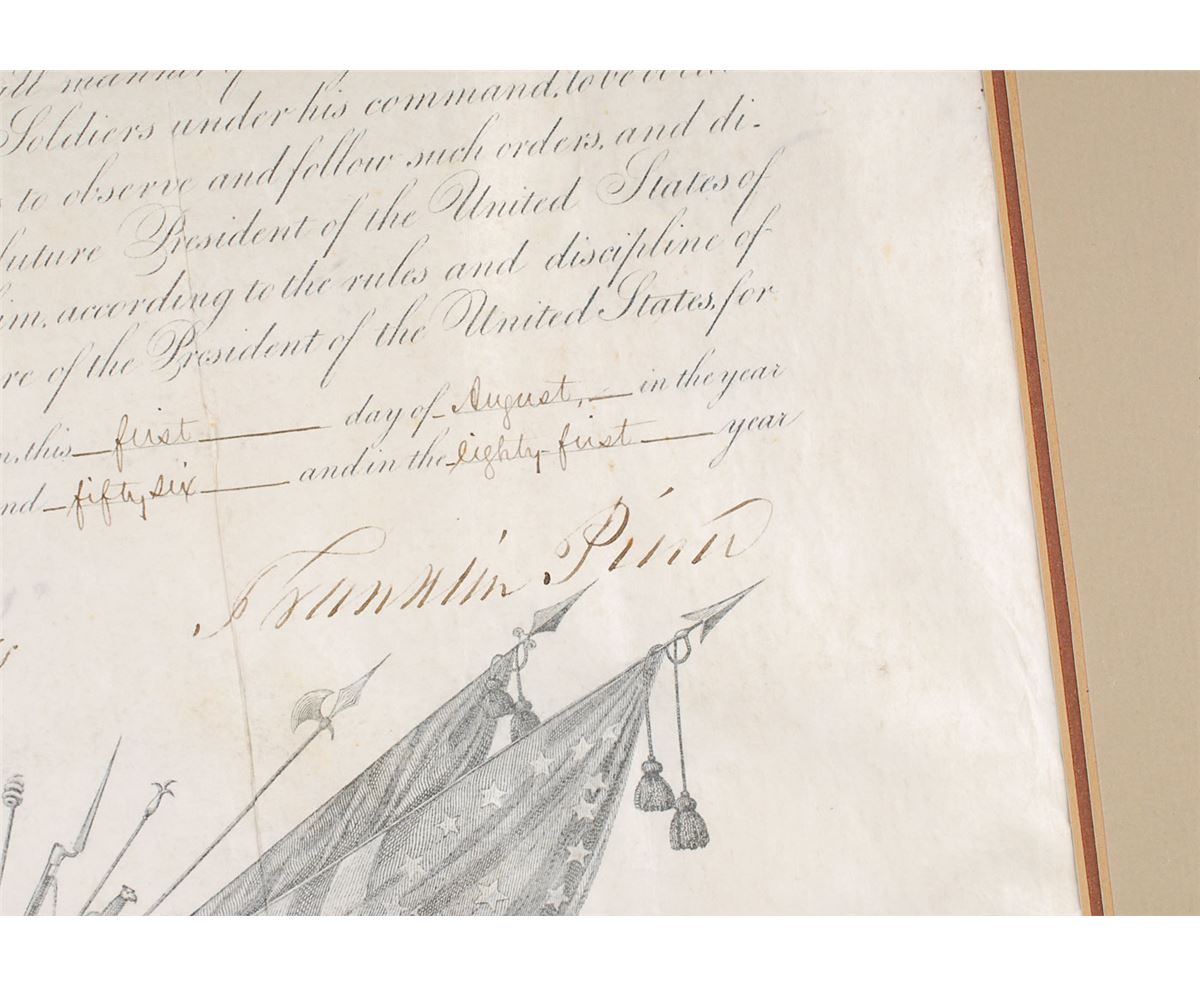 manner
Soldiers under his command, to be
to observe and follow such orders, and di-
future President of the United States of
him, according to the rules and discipline of
re of the President of the United States, for
n, this first day of August, in the year
nd fifty six and in the eighty-first year
Franklin Pierce